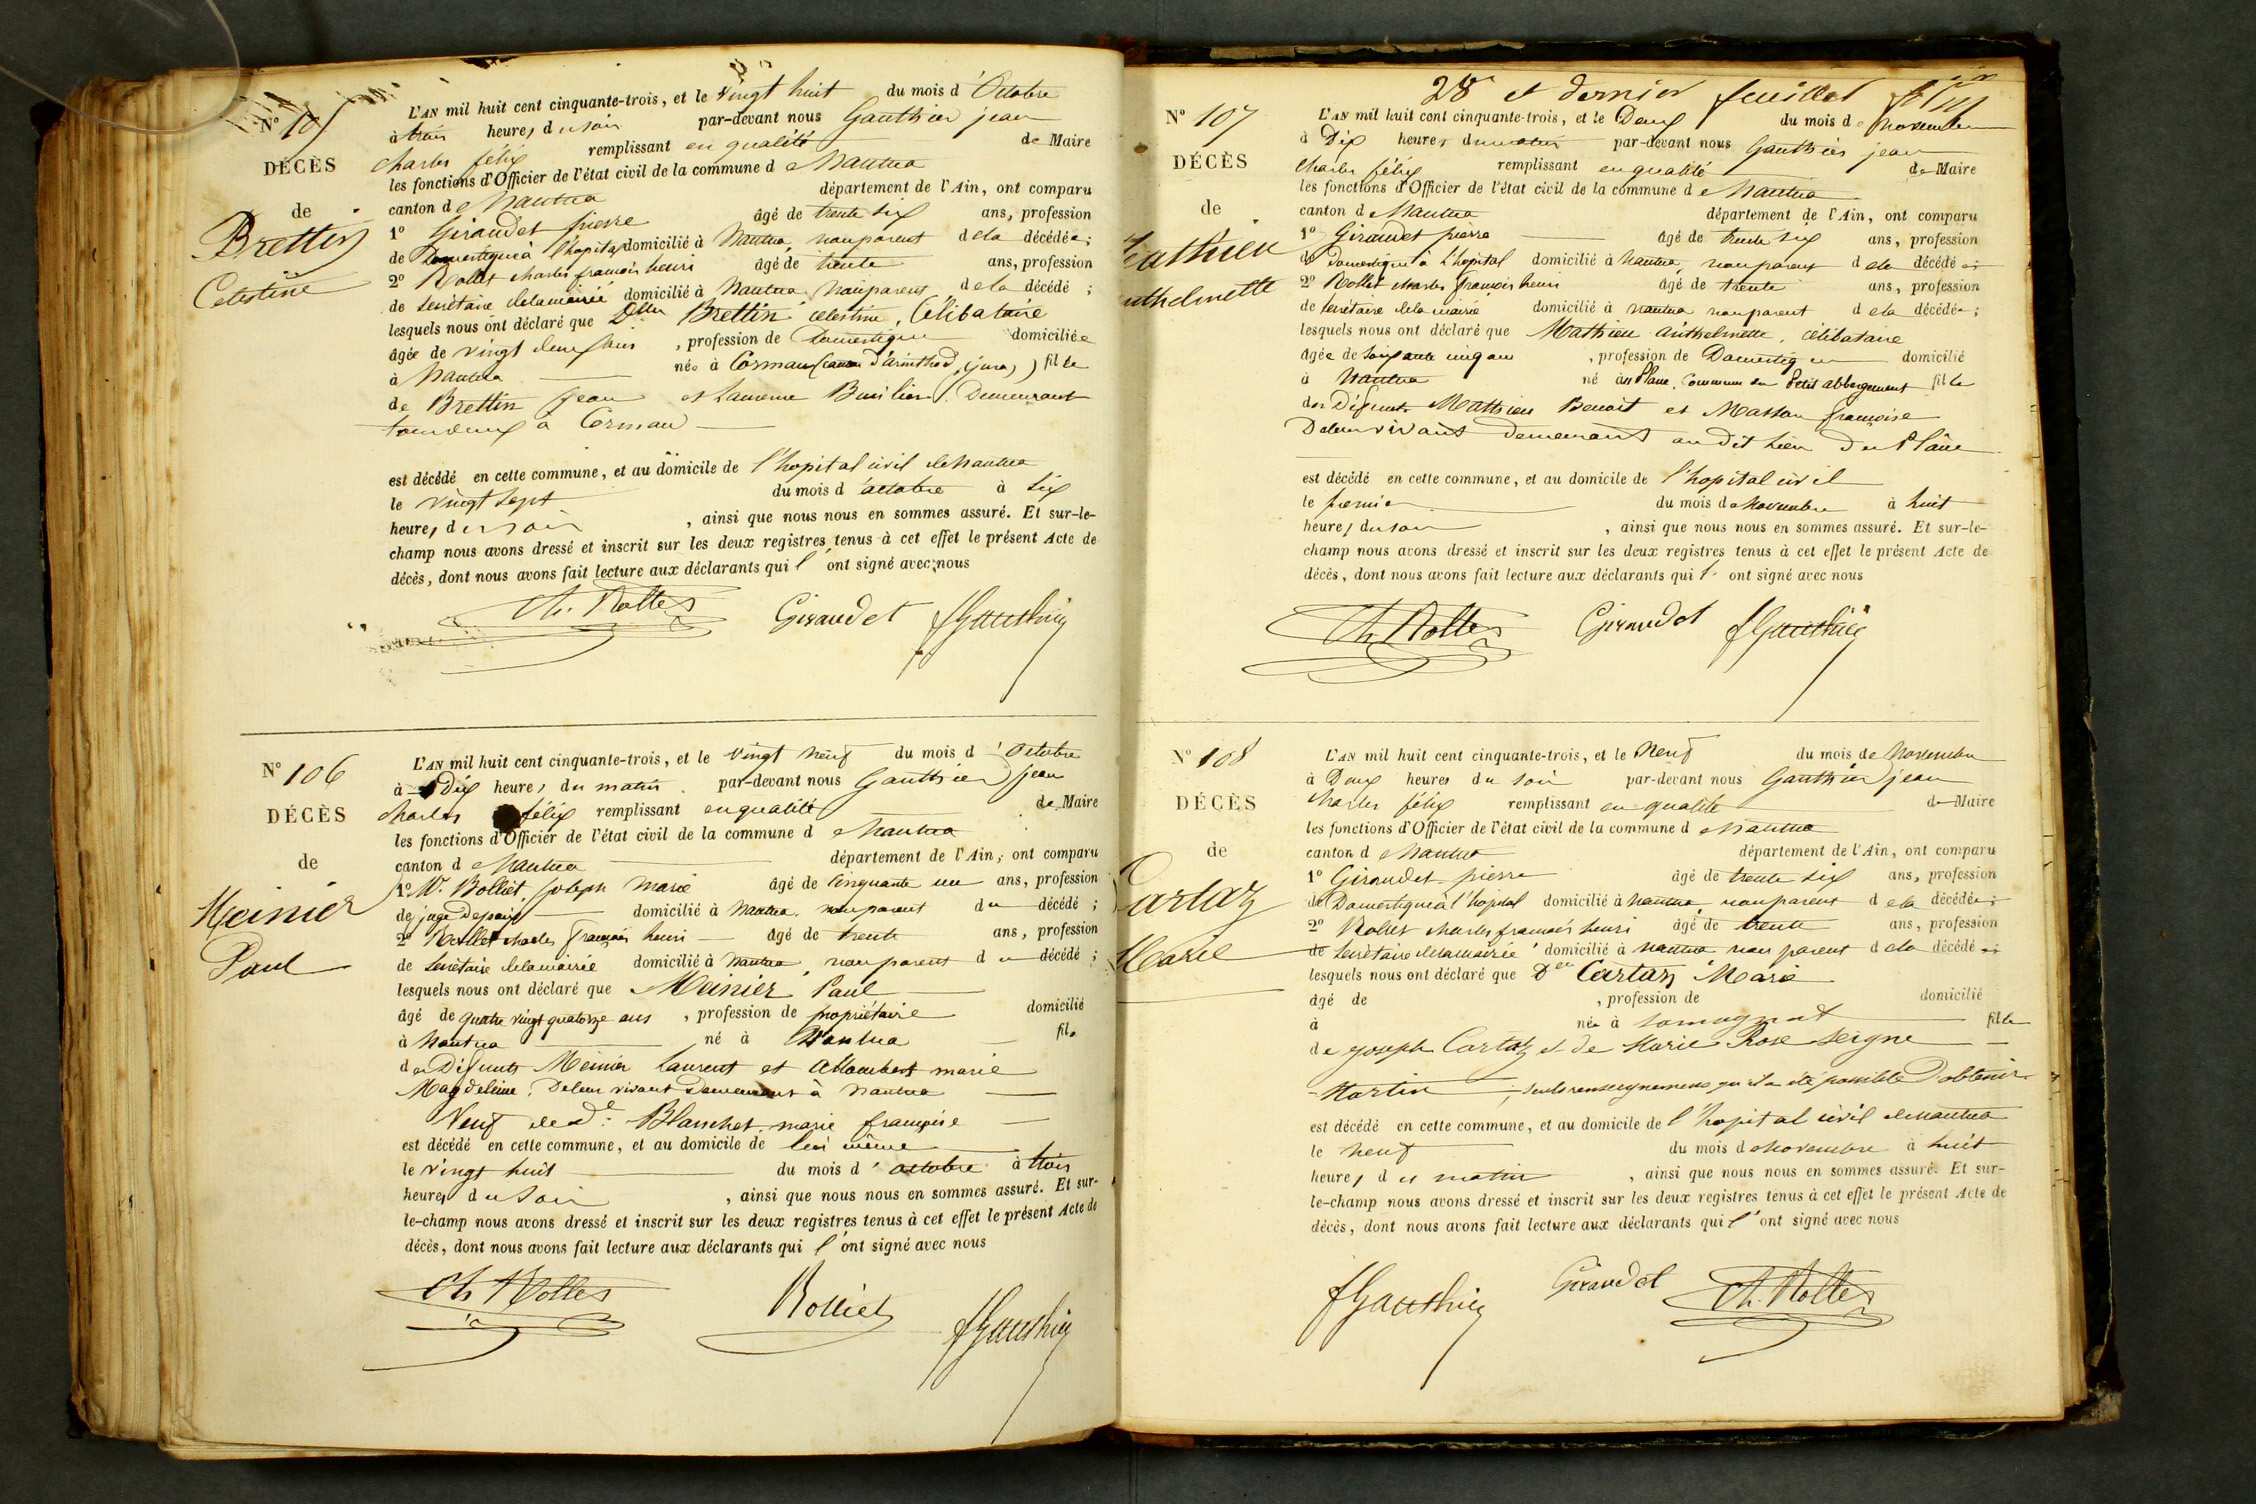 N° 105
DÉCÈS
de
Brettin
Celestine
L'AN mil huit cent cinquante-trois, et le vingt huit du mois d'Octobre
à trois heures du soir par-devant nous Gauthier jean
charles félix remplissant en qualité de Maire
les fonctions d'Officier de l'état civil de la commune de Nantua
canton de Nantua département de l'Ain, ont comparu
1° Giraudet pierre âgé de trente six ans, profession
de Domestique à l'hopital domicilié à Nantua, non parent de la décédée;
2° Rollet charles françois henri âgé de trente ans, profession
de secrétaire de la mairie domicilié à Nantua non parent de la décédé;
lesquels nous ont déclaré que Delle Brettin celestine, Célibataire
âgée de vingt deux ans, profession de Domestique domiciliée
à Nantua née à Cornau (canton d'arinthod, jura) fille
de Brettin jean et Demeurant
tous deux à Cornau
est décédé en cette commune, et au domicile de l'hopital civil de Nantua
le vingt sept du mois d'octobre à six
heures du soir, ainsi que nous nous en sommes assuré. Et sur-le-
champ nous avons dressé et inscrit sur les deux registres tenus à cet effet le présent Acte de
décès, dont nous avons fait lecture aux déclarants qui l'ont signé avec nous
Ch. Rollet Giraudet fGauthier
N° 106
DÉCÈS
de
Meinier
Paul
L'AN mil huit cent cinquante-trois, et le vingt neuf du mois d'Octobre
à Dix heures du matin par-devant nous Gauthier jean
charles félix remplissant en qualité de Maire
les fonctions d'Officier de l'état civil de la commune de Nantua
canton de Nantua département de l'Ain, ont comparu
1° Mr. Bolliet joseph Marie âgé de Cinquante un ans, profession
de juge de paix domicilié à Nantua, non parent du décédé;
2° Rollet charles françois henri âgé de trente ans, profession
de Secrétaire de la mairie domicilié à Nantua, non parent du décédé;
lesquels nous ont déclaré que Meinier Paul
âgé de quatre vingt quatorze ans, profession de propriétaire domicilié
à Nantua né à Nantua fils
des Défunts Meinier Laurent et Allombert marie
Magdeleine. De leur vivant Demeurant à Nantua
Veuf de de: Blanchet marie françoise
est décédé en cette commune, et au domicile de lui même
le vingt huit du mois d'octobre à trois
heures du soir, ainsi que nous nous en sommes assuré. Et sur-
le-champ nous avons dressé et inscrit sur les deux registres tenus à cet effet le présent Acte de
décès, dont nous avons fait lecture aux déclarants qui l'ont signé avec nous
Ch Rollet Bolliet fGauthier
28e et dernier feuillet
N° 107
DÉCÈS
de
Mathieu
anthelmette
L'AN mil huit cent cinquante-trois, et le Deux du mois de Novembre
à Dix heures du matin par-devant nous Gauthier jean
charles félix remplissant en qualité de Maire
les fonctions d'Officier de l'état civil de la commune de Nantua
canton de Nantua département de l'Ain, ont comparu
1° Giraudet pierre âgé de trente six ans, profession
de Domestique à l'hopital domicilié à Nantua, non parent de la décédée;
2° Rollet charles françois henri âgé de trente ans, profession
de secrétaire de la mairie domicilié à Nantua non parent de la décédée;
lesquels nous ont déclaré que Mathieu anthelmette, célibataire
âgée de soixante cinq ans, profession de Domestique domicilié
à Nantua né au Plane, Commune du petit abbergement fille
des Défunts Mathieu Benoit et Masson françoise
De leur vivant demeurant au dit lieu Du Plane
est décédé en cette commune, et au domicile de l'hopital civil
le premier du mois de Novembre à huit
heures du soir, ainsi que nous nous en sommes assuré. Et sur-le-
champ nous avons dressé et inscrit sur les deux registres tenus à cet effet le présent Acte de
décès, dont nous avons fait lecture aux déclarants qui l'ont signé avec nous
Ch Rollet Giraudet fGauthier
N° 108
DÉCÈS
de
Cartaz
Marie
L'AN mil huit cent cinquante-trois, et le Neuf du mois de Novembre
à Deux heures du soir par-devant nous Gauthier jean
charles félix remplissant en qualité de Maire
les fonctions d'Officier de l'état civil de la commune de Nantua
canton de Nantua département de l'Ain, ont comparu
1° Giraudet pierre âgé de trente six ans, profession
de Domestique à l'hopital domicilié à Nantua, non parent de la décédée;
2° Rollet charles françois henri âgé de trente ans, profession
de secrétaire de la mairie domicilié à Nantua non parent de la décédée;
lesquels nous ont déclaré que Delle Cartaz Marie
âgé de , profession de domicilié
à née à Samognat fille
de joseph Cartaz et de Marie Rose Seigne
Martin, seuls renseignemens qu'il a été possible D'obtenir
est décédé en cette commune, et au domicile de l'hopital civil de Nantua
le neuf du mois de Novembre à huit
heures du matin, ainsi que nous nous en sommes assuré. Et sur-
le-champ nous avons dressé et inscrit sur les deux registres tenus à cet effet le présent Acte de
décès, dont nous avons fait lecture aux déclarants qui l'ont signé avec nous
fGauthier Giraudet Ch. Rollet